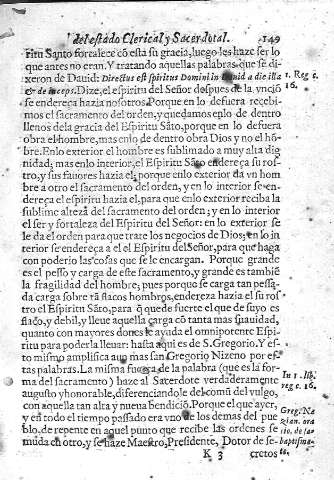 del estado Clerical, y Sacerdotal. 149
ritu Santo fortalece cõ esta su gracia, luego les haze ser lo
que antes no eran. Y tratando aquellas palabras que se di-
xeron de Dauid: Directus est spiritus Domini in Dauid a die illa
& deinceps. Dize, el espiritu del Señor despues de la vnciõ
se endereça hazia nosotros. Porque en lo defuera recebi-
mos el sacramento del orden, y quedamos en lo de dentro
llenos dela gracia del Espiritu Sãto, porque en lo defuera
obra el hombre, mas enlo de dentro obra Dios y no el hõ-
bre. Enlo exterior el hombre es sublimado a muy alta dig
nidad; mas enlo interior, el Espiritu Sãto endereça su ros-
tro, y sus fauores hazia el; porque enlo exterior da vn hom
bre a otro el sacramento del orden, y en lo interior se en-
dereça el espiritu hazia el, para que enlo exterior reciba la
sublime alteza del sacramento del orden; y en lo interior
el ser y fortaleza del Espiritu del Señor: en lo exterior se
le da el orden para que trate los negocios de Dios; en lo in
terior se endereça a el el Espiritu del Señor, para que haga
con poderio las cosas que se le encargan. Porque grande
es el peso y carga de este sacramento, y grande es tambiē
la fragilidad del hombre; pues porque se carga tan pessa-
da carga sobre tã flacos hombros, endereza hazia el su ros
tro el Espiritu Sãto, para q̃ quede fuerte el que de suyo es
flaco, y debil, y lleue aquella carga cõ tanta mas suauidad,
quanto con mayores dones le ayuda el omnipotente Espi-
ritu para poderla lleuar: hasta aqui es de S. Gregorio. Y es-
to mismo amplifica aun mas san Gregorio Nizeno por es-
tas palabras. La misma fuerça de la palabra (que es la for-
ma del sacramento) haze al Sacerdote verdaderamente
augusto y honorable, diferenciandole del comũ del vulgo,
con aquella tan alta y nueua bendiciõ. Porque el que ayer,
y en todo el tiempo passado era vno de los demas del pue
blo, de repente en aquel punto que recibe las ordenes se
muda en otro, y se haze Maestro, Presidente, Dotor de se-
K 3 cretos
1. Reg c.
16.
In 1. lib.
reg c. 16.
Greg. Na
zian. ora
tio. de
baptism.